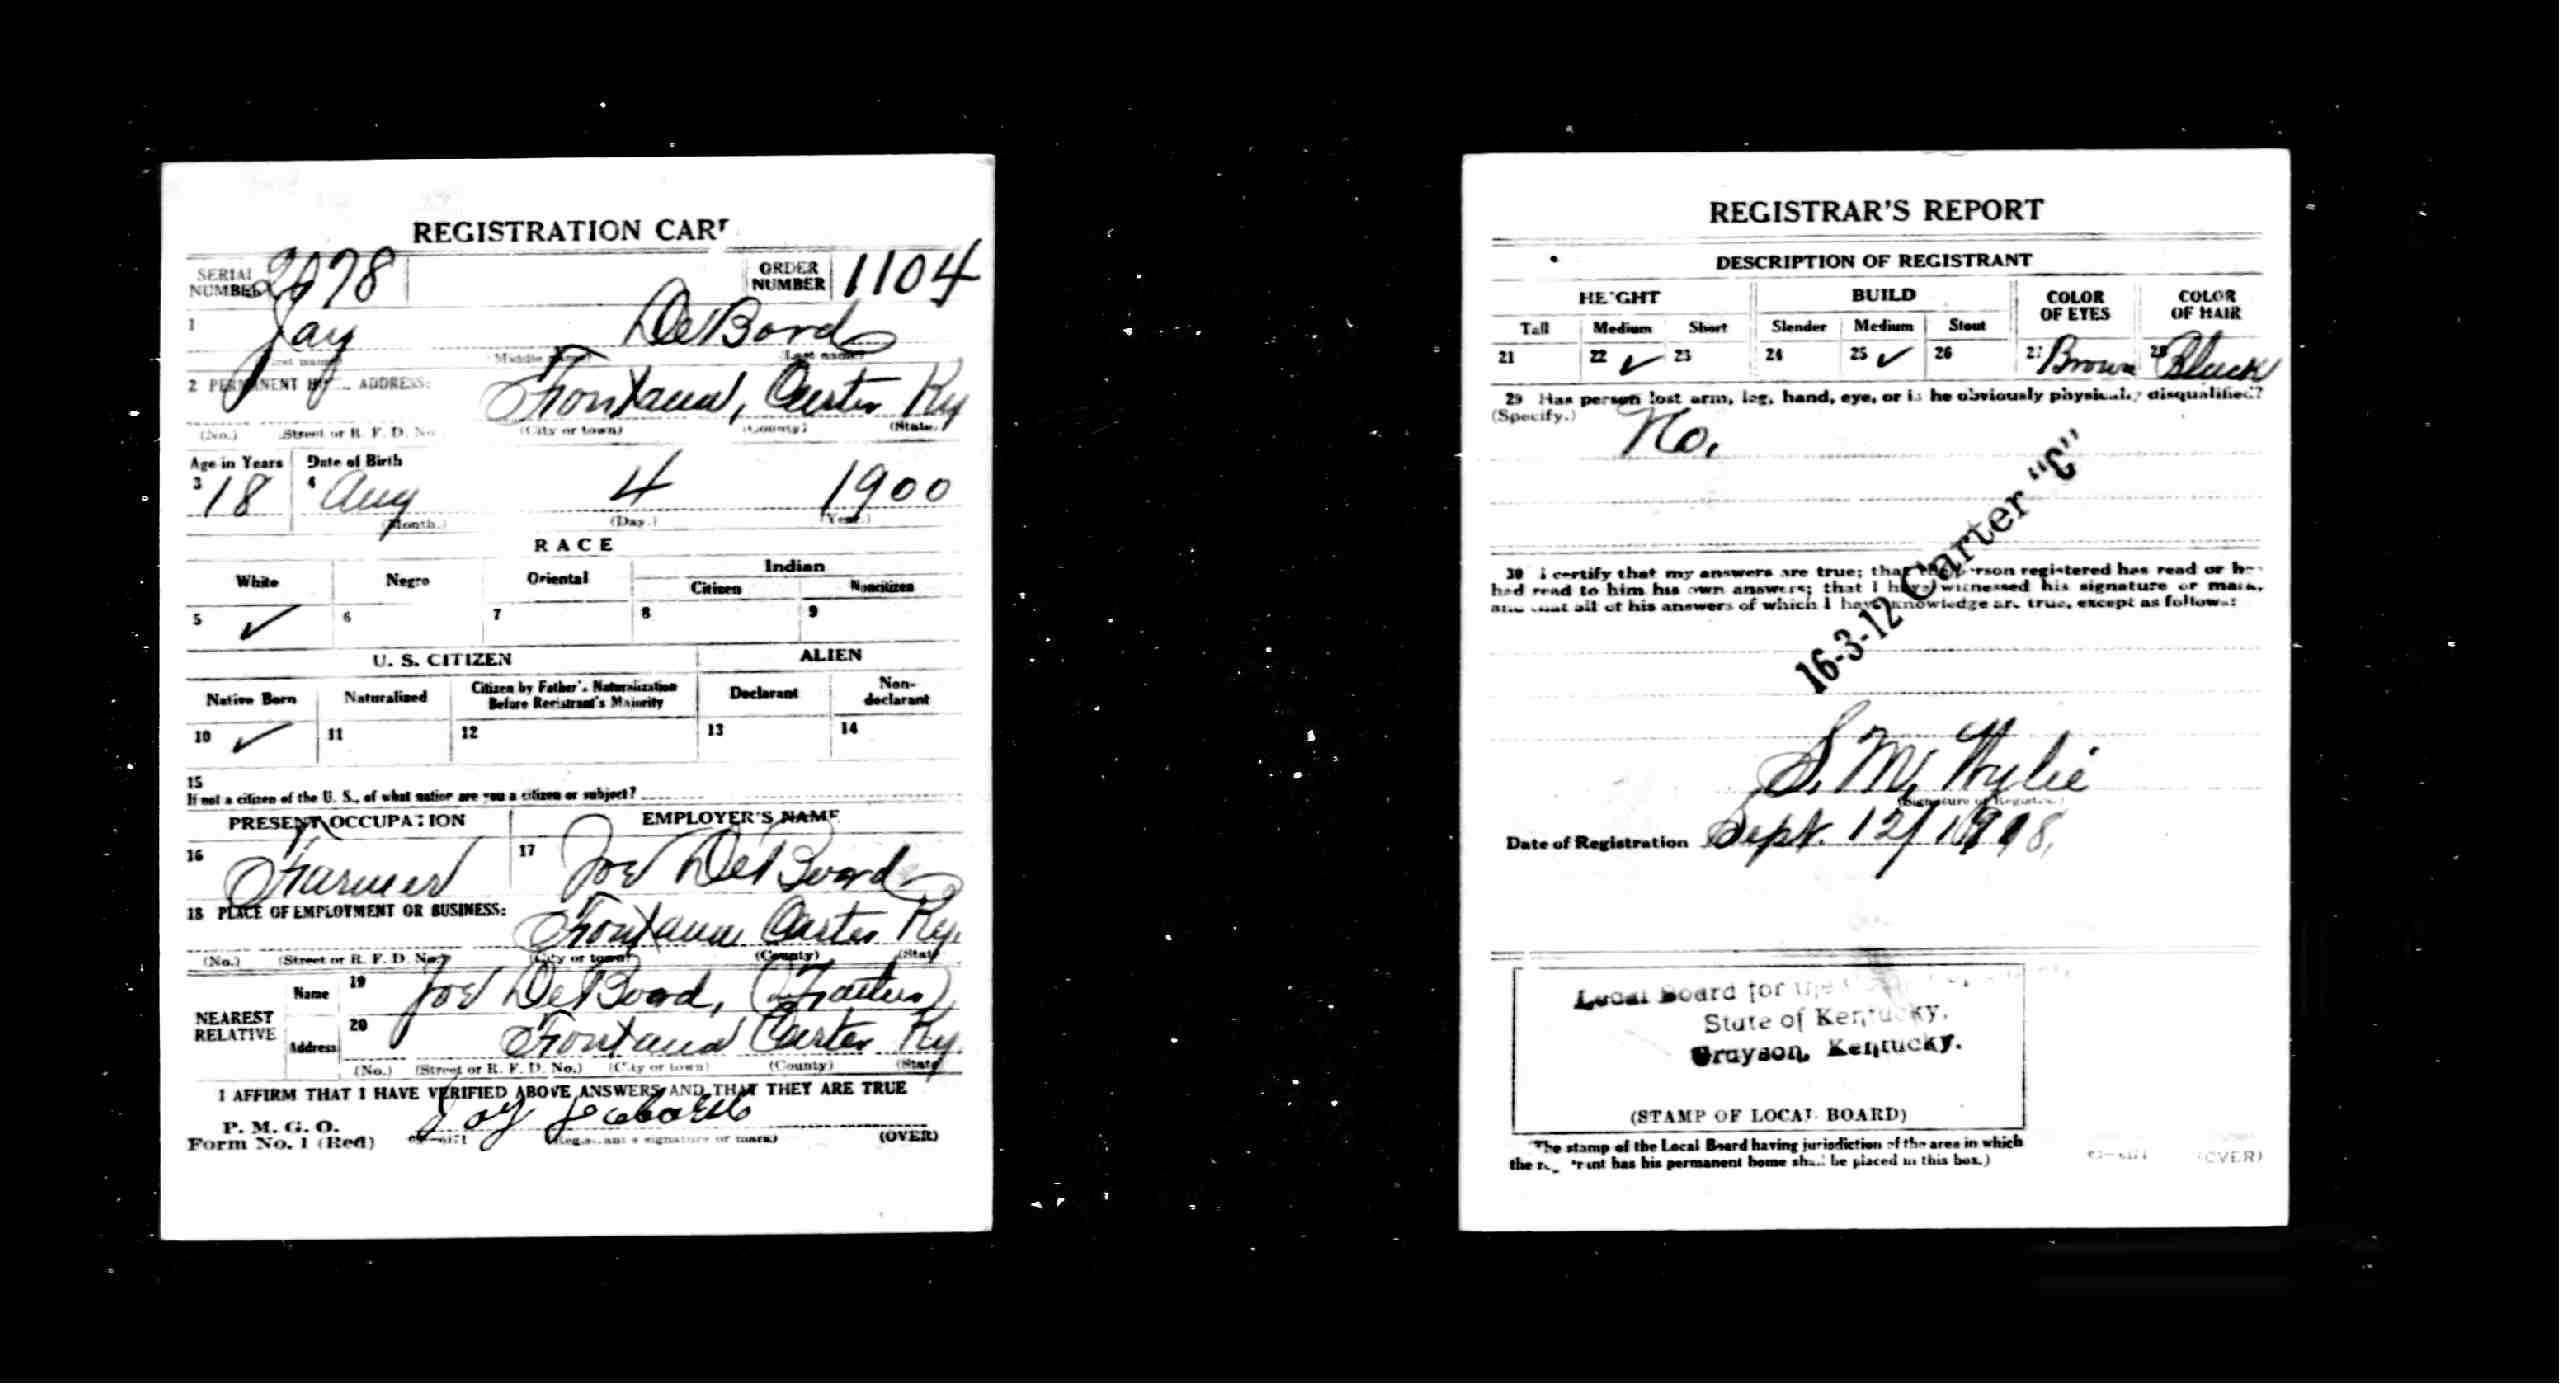 REGISTRATION CARD
SERIAL NUMBER 2978 ORDER NUMBER 1104
1 Jay DeBord
(First name) (Middle name) (Last name)
2 PERMANENT HOME ADDRESS:
Fontana, Carter Ky
(No.) (Street or R. F. D. No.) (City or town) (County) (State)
Age in Years Date of Birth
3 18 4 Aug 4 1900
(Month.) (Day.) (Year.)
RACE
White Negro Oriental Indian
Citizen Noncitizen
5 ✓ 6 7 8 9
U. S. CITIZEN ALIEN
Native Born Naturalized Citizen by Father's Naturalization Before Registrant's Majority Declarant Non-declarant
10 ✓ 11 12 13 14
15
If not a citizen of the U. S., of what nation are you a citizen or subject?
PRESENT OCCUPATION EMPLOYER'S NAME
16 Farmer 17 Joe DeBoard
18 PLACE OF EMPLOYMENT OR BUSINESS:
Fontana Carter Ky.
(No.) (Street or R. F. D. No.) (City or town) (County) (State)
NEAREST RELATIVE
Name 19 Joe DeBoard, (Father)
Address 20 Fontana Carter Ky.
(No.) (Street or R. F. D. No.) (City or town) (County) (State)
I AFFIRM THAT I HAVE VERIFIED ABOVE ANSWERS AND THAT THEY ARE TRUE
P. M. G. O.
Form No. 1 (Red) Jay
(Registrant's signature or mark) (OVER)
REGISTRAR'S REPORT
DESCRIPTION OF REGISTRANT
HEIGHT BUILD COLOR OF EYES COLOR OF HAIR
Tall Medium Short Slender Medium Stout
21 22 ✓ 23 24 25 ✓ 26 27 Brown 28 Black
29 Has person lost arm, leg, hand, eye, or is he obviously physically disqualified?
(Specify.) No.
30 I certify that my answers are true; that the person registered has read or has
had read to him his own answers; that I have witnessed his signature or mark,
and that all of his answers of which I have knowledge are true, except as follows:
16-3-12 Carter "C"
S. M. Wylie
(Signature of Registrar)
Date of Registration Sept. 12/1918.
Local Board for the
State of Kentucky,
Grayson, Kentucky.
(STAMP OF LOCAL BOARD)
(The stamp of the Local Board having jurisdiction of the area in which
the registrant has his permanent home shall be placed in this box.)
03-6171 (OVER)